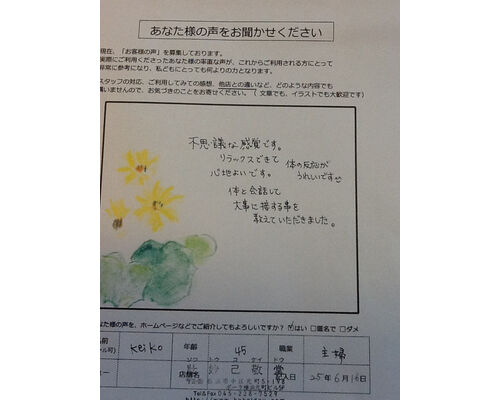 あなた様の声をお聞かせください
現在、「お客様の声」を募集しております。
実際にご利用くださったあなた様の率直な声が、これからご利用される方にとって
非常に参考になり、私どもにとっても何よりの力となります。
スタッフの対応、ご利用してみての感想、他店との違いなど、どのような内容でも
構いませんので、お気づきのことをお寄せください。（文章でも、イラストでも大歓迎です）
不思議な感覚です。
リラックスできて
心地よいです。
体の反応が
うれしいです
体と会話して
大事に接する事を
教えていただきました。
なた様の声を、ホームページなどでご紹介してもよろしいですか？ ☑はい □匿名で □ダメ
前
Keiko
年齢
45
職業
主婦
ソウ コ ケイ トウ
己 敬 堂
店舗名
入日
25年6月18日
Tel&Fax 045-228-7829